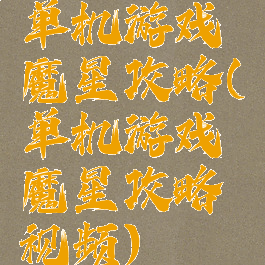 单机游戏
魔星攻略(
单机游戏
魔星攻略
视频)